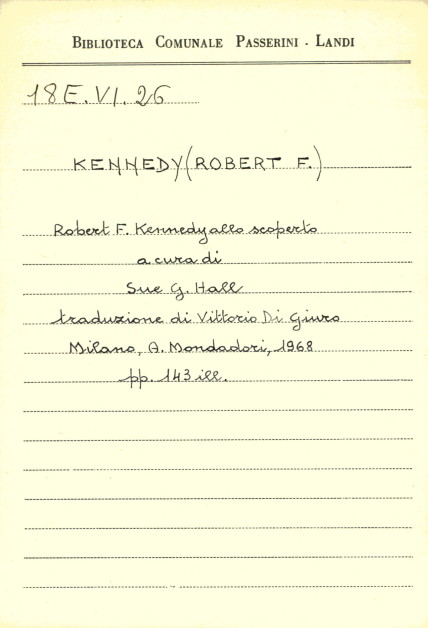 BIBLIOTECA COMUNALE PASSERINI - LANDI
18 E. VI. 26
KENNEDY (ROBERT F.)
Robert F. Kennedy allo scoperto
a cura di
Sue G. Hall
traduzione di Vittorio Di Giuro
Milano, A. Mondadori, 1968
pp. 143 ill.